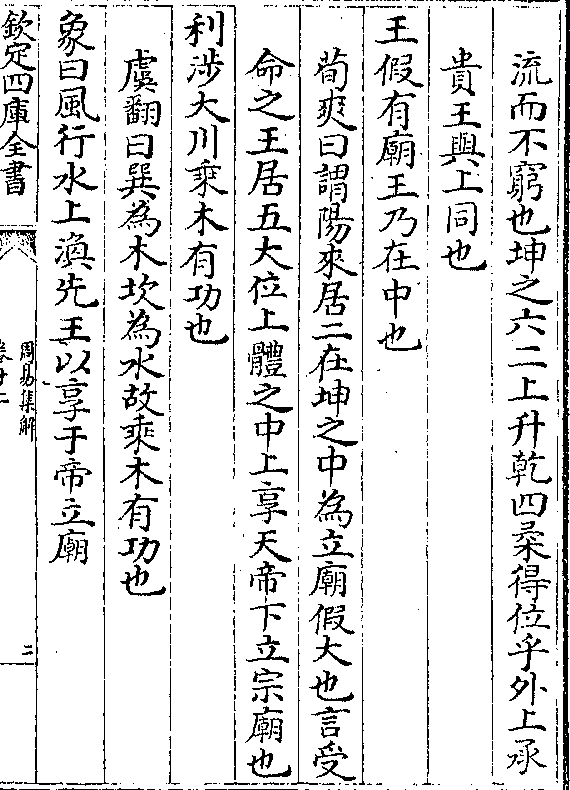 流而不窮也坤之六二上升乾四柔得位乎外上承
貴王與上同也
王假有廟王乃在中也
荀爽曰謂陽來居二在坤之中為立廟假大也言受
命之王居五大位上體之中上享天帝下立宗廟也
利涉大川乘木有功也
虞翻曰巽為木坎為水故乘木有功也
象曰風行水上渙先王以享于帝立廟
欽定四庫全書
周易集解
卷十二
二